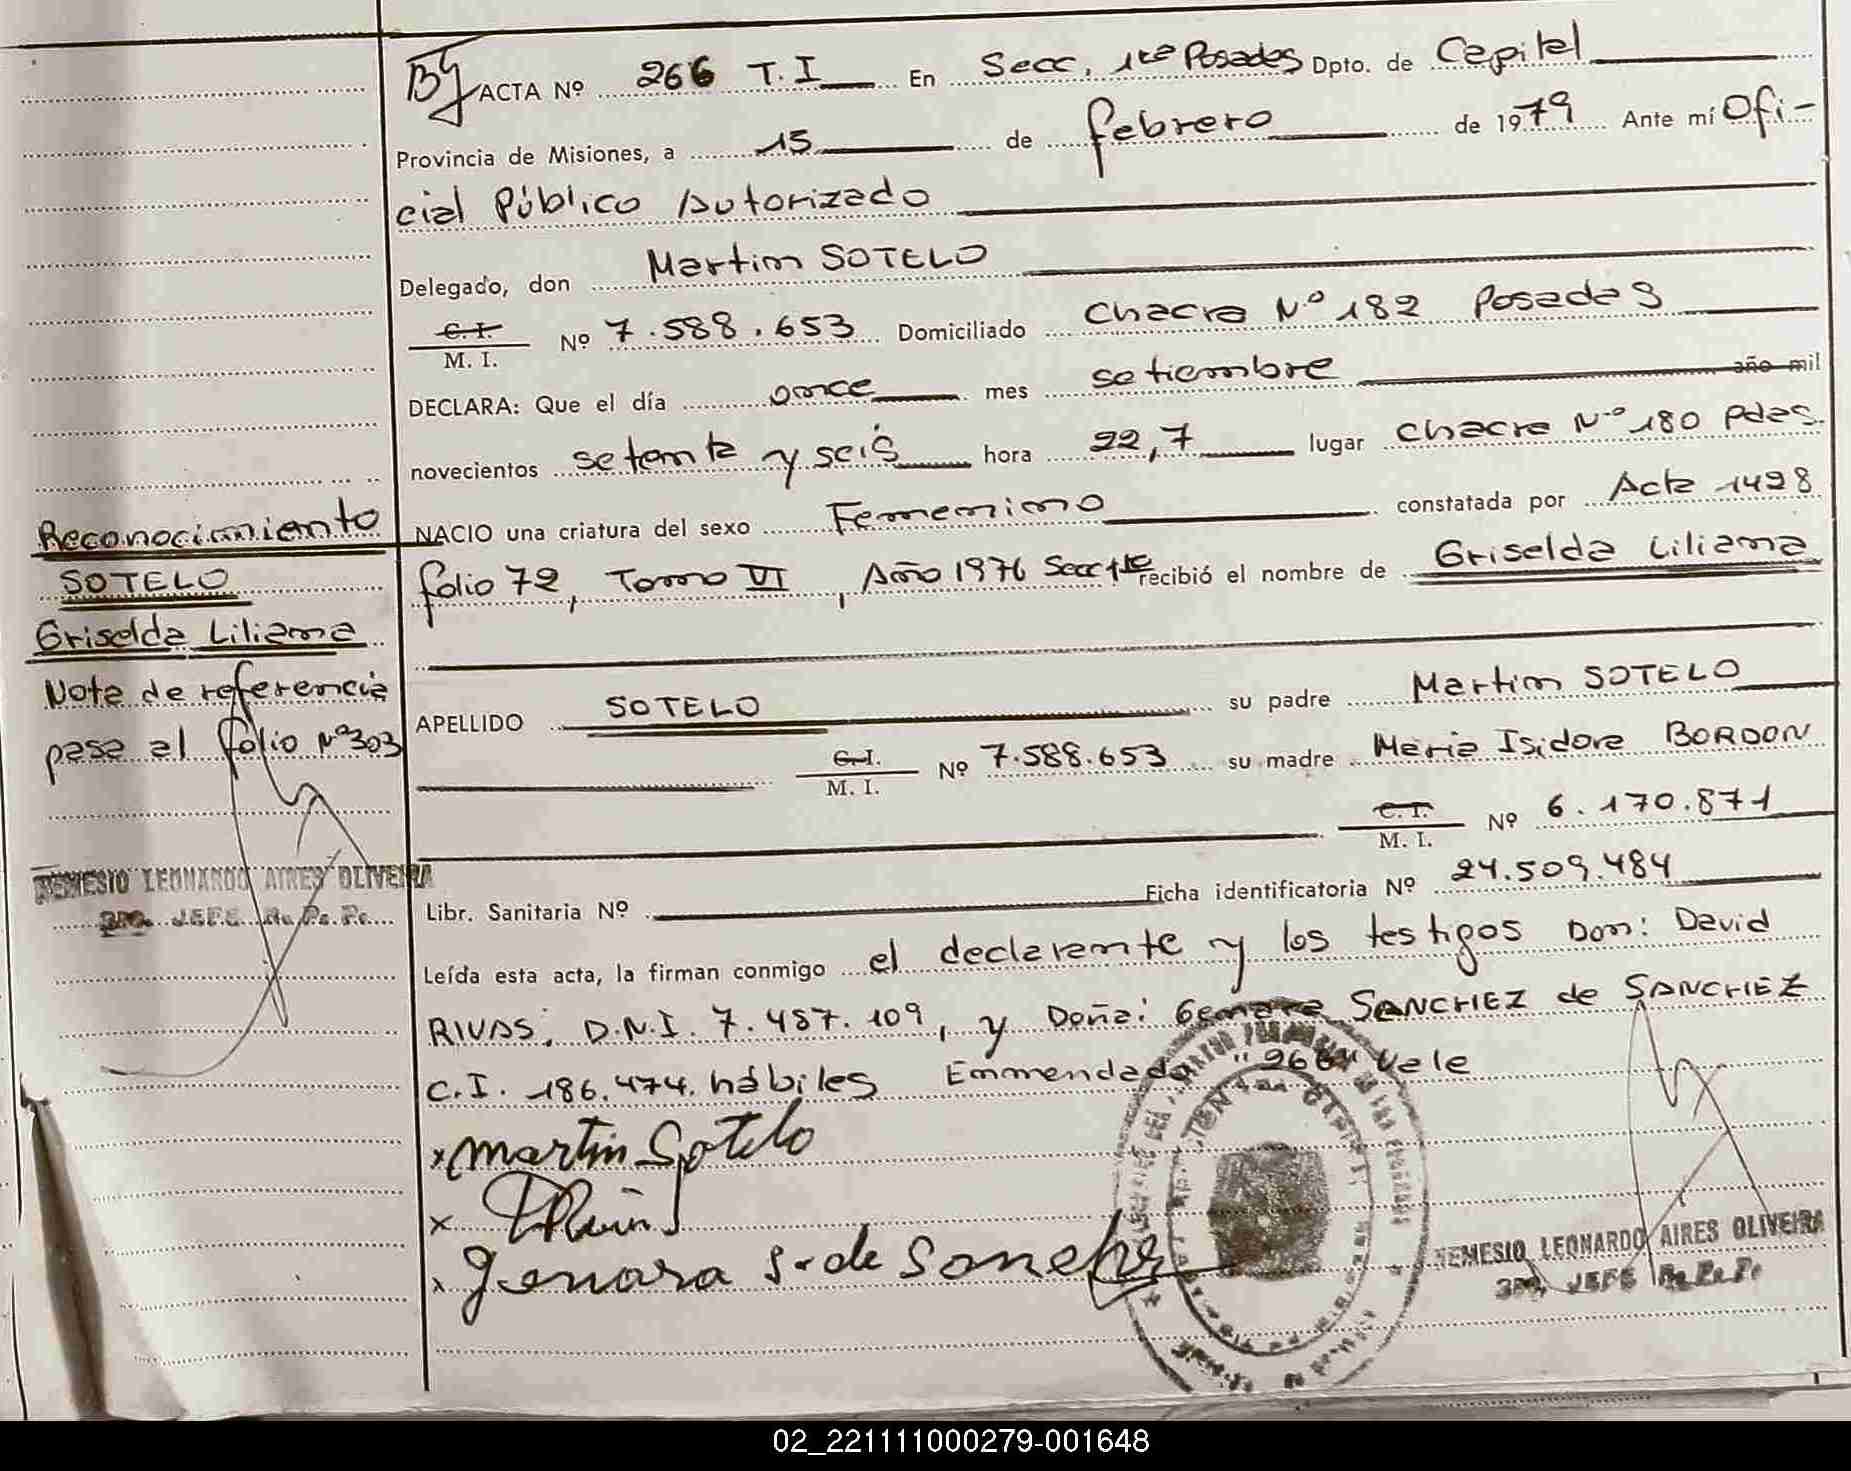 ACTA Nº 266 T.I En Secc. 1ra Posadas Dpto. de Capital
Provincia de Misiones, a 15 de febrero de 1979 Ante mí Ofi-
cial Público Autorizado
Delegado, don Martin SOTELO
C.I.
M. I. Nº 7.588.653 Domiciliado Chacra Nº 182 Posadas
DECLARA: Que el día once mes setiembre año mil
novecientos setenta y seis hora 22,7 lugar Chacra Nº 180 Pdas.
NACIO una criatura del sexo Femenino constatada por Acta 1498
folio 72, Tomo VI, Año 1976 Secc 1ra recibió el nombre de Griselda Liliana
APELLIDO SOTELO su padre Martin SOTELO
C.I.
M. I. Nº 7.588.653 su madre Maria Isidora BORDON
C.I.
M. I. Nº 6.170.871
Libr. Sanitaria Nº Ficha identificatoria Nº 24.509.484
Leída esta acta, la firman conmigo el declarante y los testigos Don: David
RIVAS, D.N.I. 7.487.109, y Doña: Genara SANCHEZ de SANCHEZ
C.I. 186.474. hábiles Emmendado "266" Vale
x Martin Sotelo
x
x Genara S. de Sanchez
NEMESIO LEONARDO AIRES OLIVEIRA
JEFE
Reconocimiento
SOTELO
Griselda Liliana
Nota de referencia
pasa al folio Nº 303
NEMESIO LEONARDO AIRES OLIVEIRA
JEFE
02_221111000279-001648